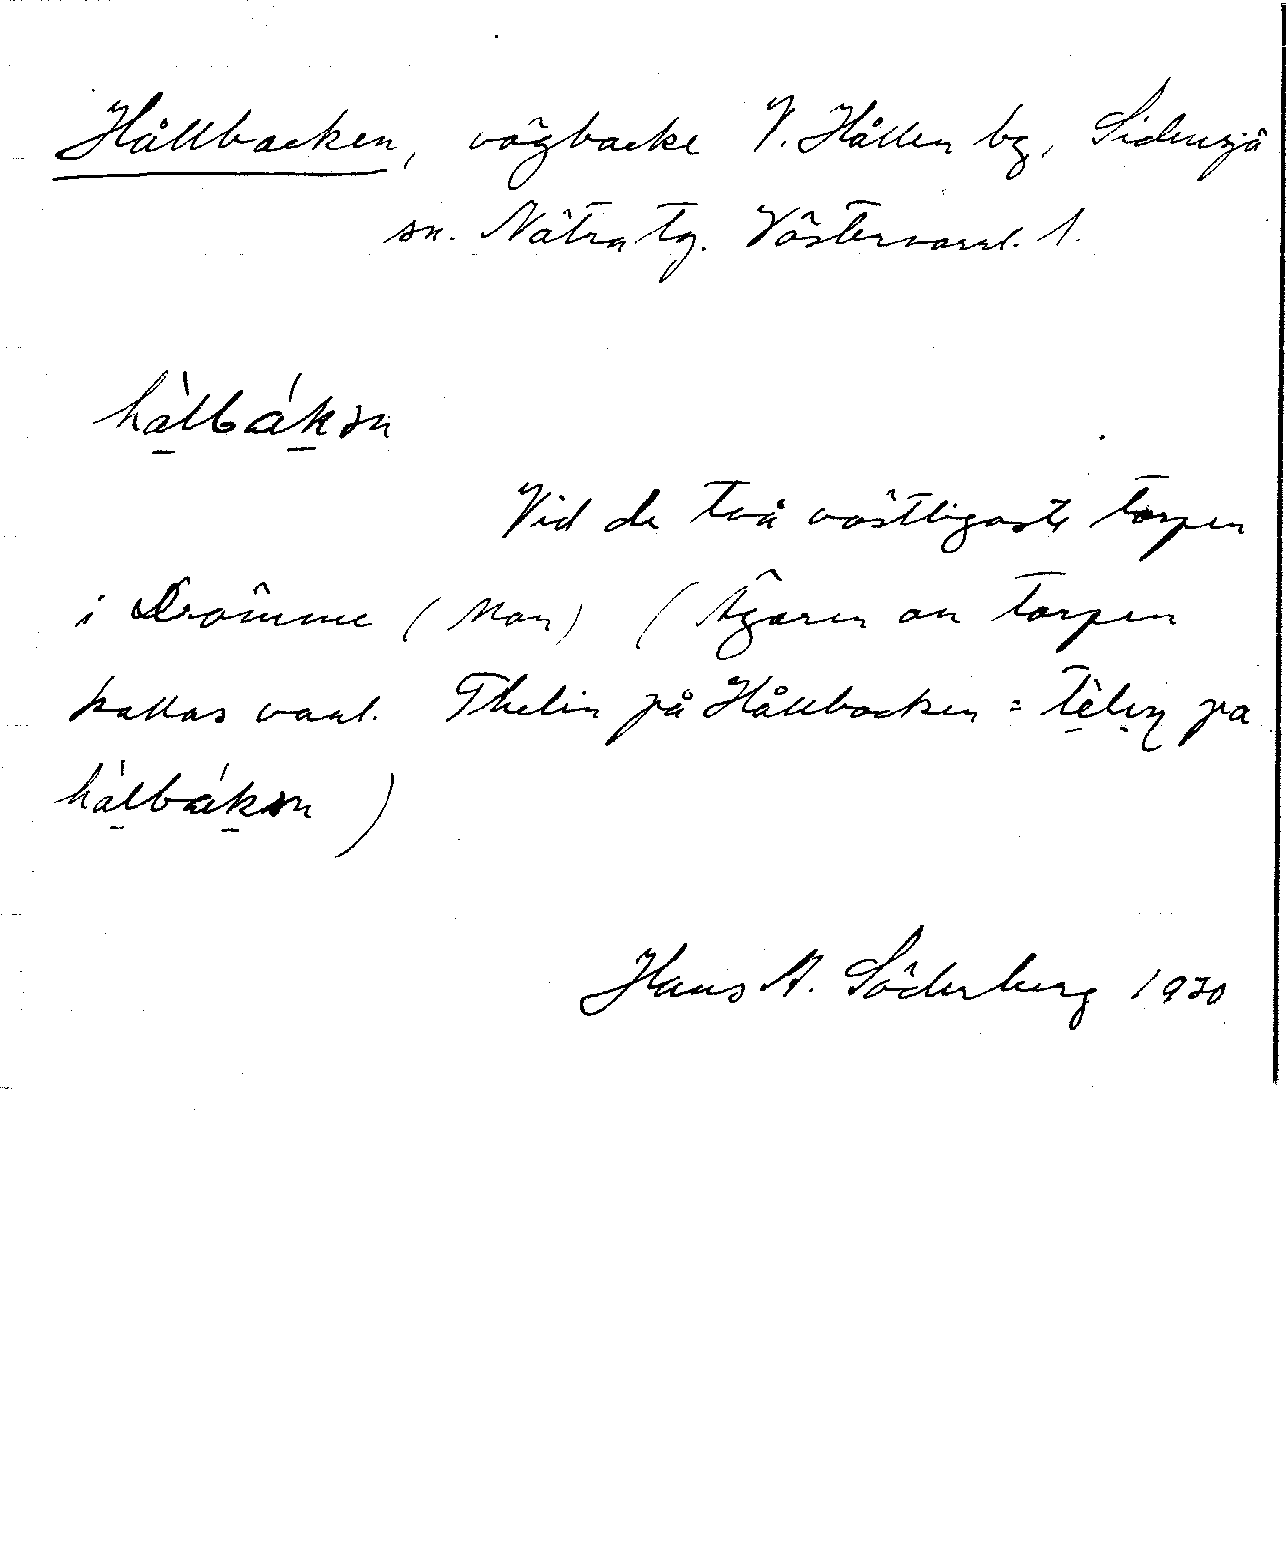 Hållbacken, vägbacke V. Hållen bg, Sidensjö
sn. Nätra tg. Västernorrl. l.
hàlbákən
Vid de två västligaste torpen
i Drömme (Mon) (Ägaren av torpen
kallas vanl. Thelin på Hållbacken = tèliŋ pa
hàlbákən)
Hans A. Söderberg 1930